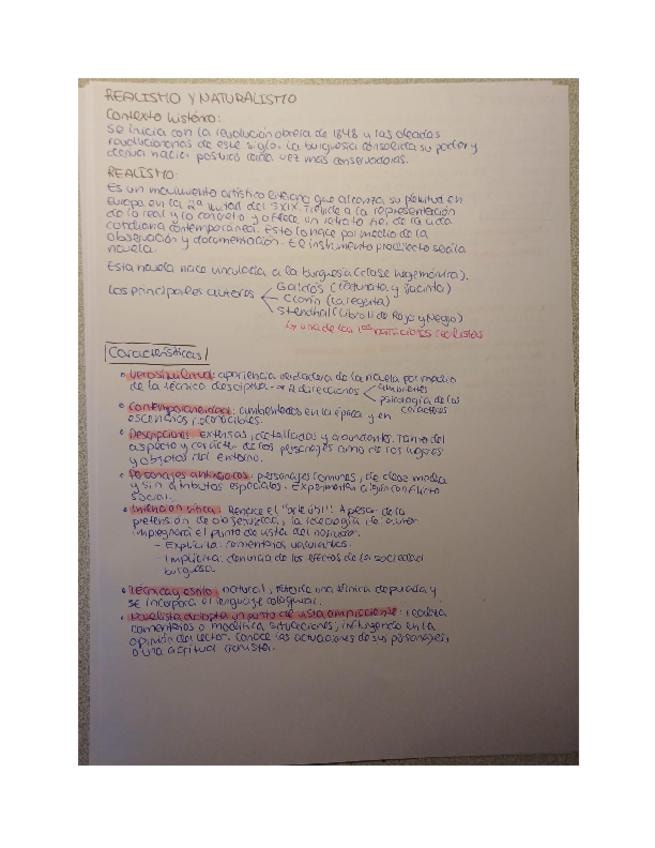 REALISMO Y NATURALISMO
Contexto histórico:
Se inicia con la revolución obrera de 1848 y las oleadas
revolucionarias de este siglo. La burguesía consolida su poder y
deriva hacia posturas cada vez más conservadoras.
REALISMO:
Es un movimiento artístico literario que alcanza su plenitud en
Europa en la 2ª mitad del SXIX. Tiende a la representación
de lo real y lo concreto y ofrece un retrato fiel de la vida
cotidiana contemporánea. Esto lo hace por medio de la
observación y documentación. El instrumento predilecto será la
novela.
Esta novela nace vinculada a la burguesía (clase hegemónica).
Los principales autores
Galdós (Fortunata y Jacinta)
Clarín (La regenta)
Stendhal (Libro II de Rojo y Negro)
una de las 1as realistas
Características
Verosimilitud: apariencia verdadera de la novela por medio
de la técnica descriptiva → 2 direcciones
ambientes
psicología de los
caracteres
Contemporaneidad: ambientados en la época y en
escenarios reconocibles.
Descripciones extensas, detalladas y abundantes. Tanto del
aspecto y carácter de los personajes como de los lugares
y objetos del entorno.
Personajes : personajes comunes, de clase media
y sin atributos especiales. Experimentan algún conflicto
social.
Intención crítica: Renace el "arte útil". A pesar de la
pretensión de objetividad, la ideología del autor
impregnará el punto de vista del narrador.
- Explícita: comentarios valorativos.
- Implícita: denuncia de los efectos de la sociedad
burguesa.
Técnica y estilo: natural, una técnica depurada y
se incorpora el lenguaje coloquial.
Novelista adopta un punto de vista omnisciente: realiza
comentarios o modifica situaciones, influyendo en la
opinión del lector. Conoce las actuaciones de sus personajes,
o una actitud cronista.